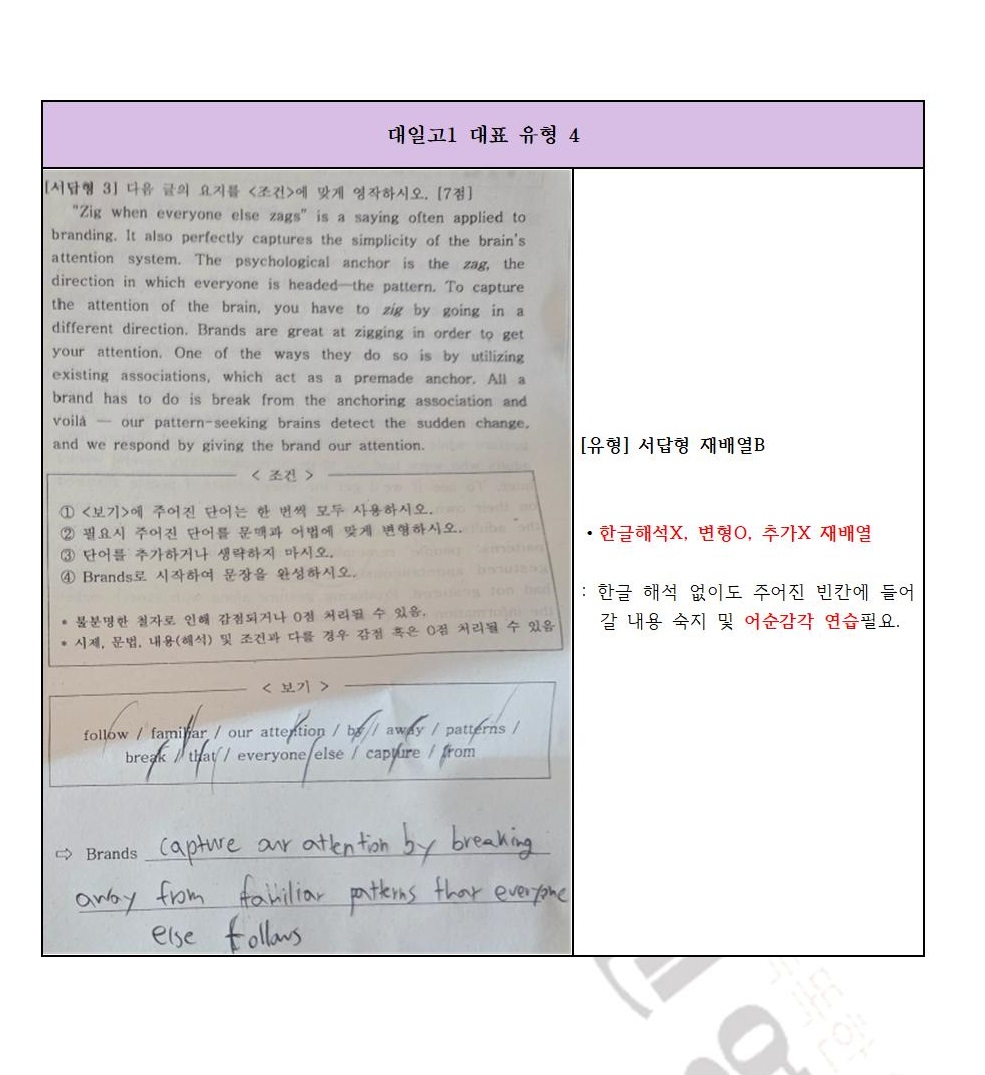 대일고1 대표 유형 4
[서답형 3] 다음 글의 요지를 <조건>에 맞게 영작하시오. [7점]
"Zig when everyone else zags" is a saying often applied to
branding. It also perfectly captures the simplicity of the brain's
attention system. The psychological anchor is the zag, the
direction in which everyone is headed—the pattern. To capture
the attention of the brain, you have to zig by going in a
different direction. Brands are great at zigging in order to get
your attention. One of the ways they do so is by utilizing
existing associations, which act as a premade anchor. All a
brand has to do is break from the anchoring association and
voilá — our pattern-seeking brains detect the sudden change,
and we respond by giving the brand our attention.
< 조건 >
① <보기>에 주어진 단어는 한 번씩 모두 사용하시오.
② 필요시 주어진 단어를 문맥과 어법에 맞게 변형하시오.
③ 단어를 추가하거나 생략하지 마시오.
④ Brands로 시작하여 문장을 완성하시오.
* 불분명한 철자로 인해 감점되거나 0점 처리될 수 있음.
* 시제, 문법, 내용(해석) 및 조건과 다를 경우 감점 혹은 0점 처리될 수 있음
< 보기 >
follow / familiar / our attention / by / away / patterns /
break / that / everyone else / capture / from
⇨ Brands capture our attention by breaking
away from familiar patterns that everyone
else follows
[유형] 서답형 재배열B
・한글해석X, 변형O, 추가X 재배열
: 한글 해석 없이도 주어진 빈칸에 들어
갈 내용 숙지 및 어순감각 연습필요.